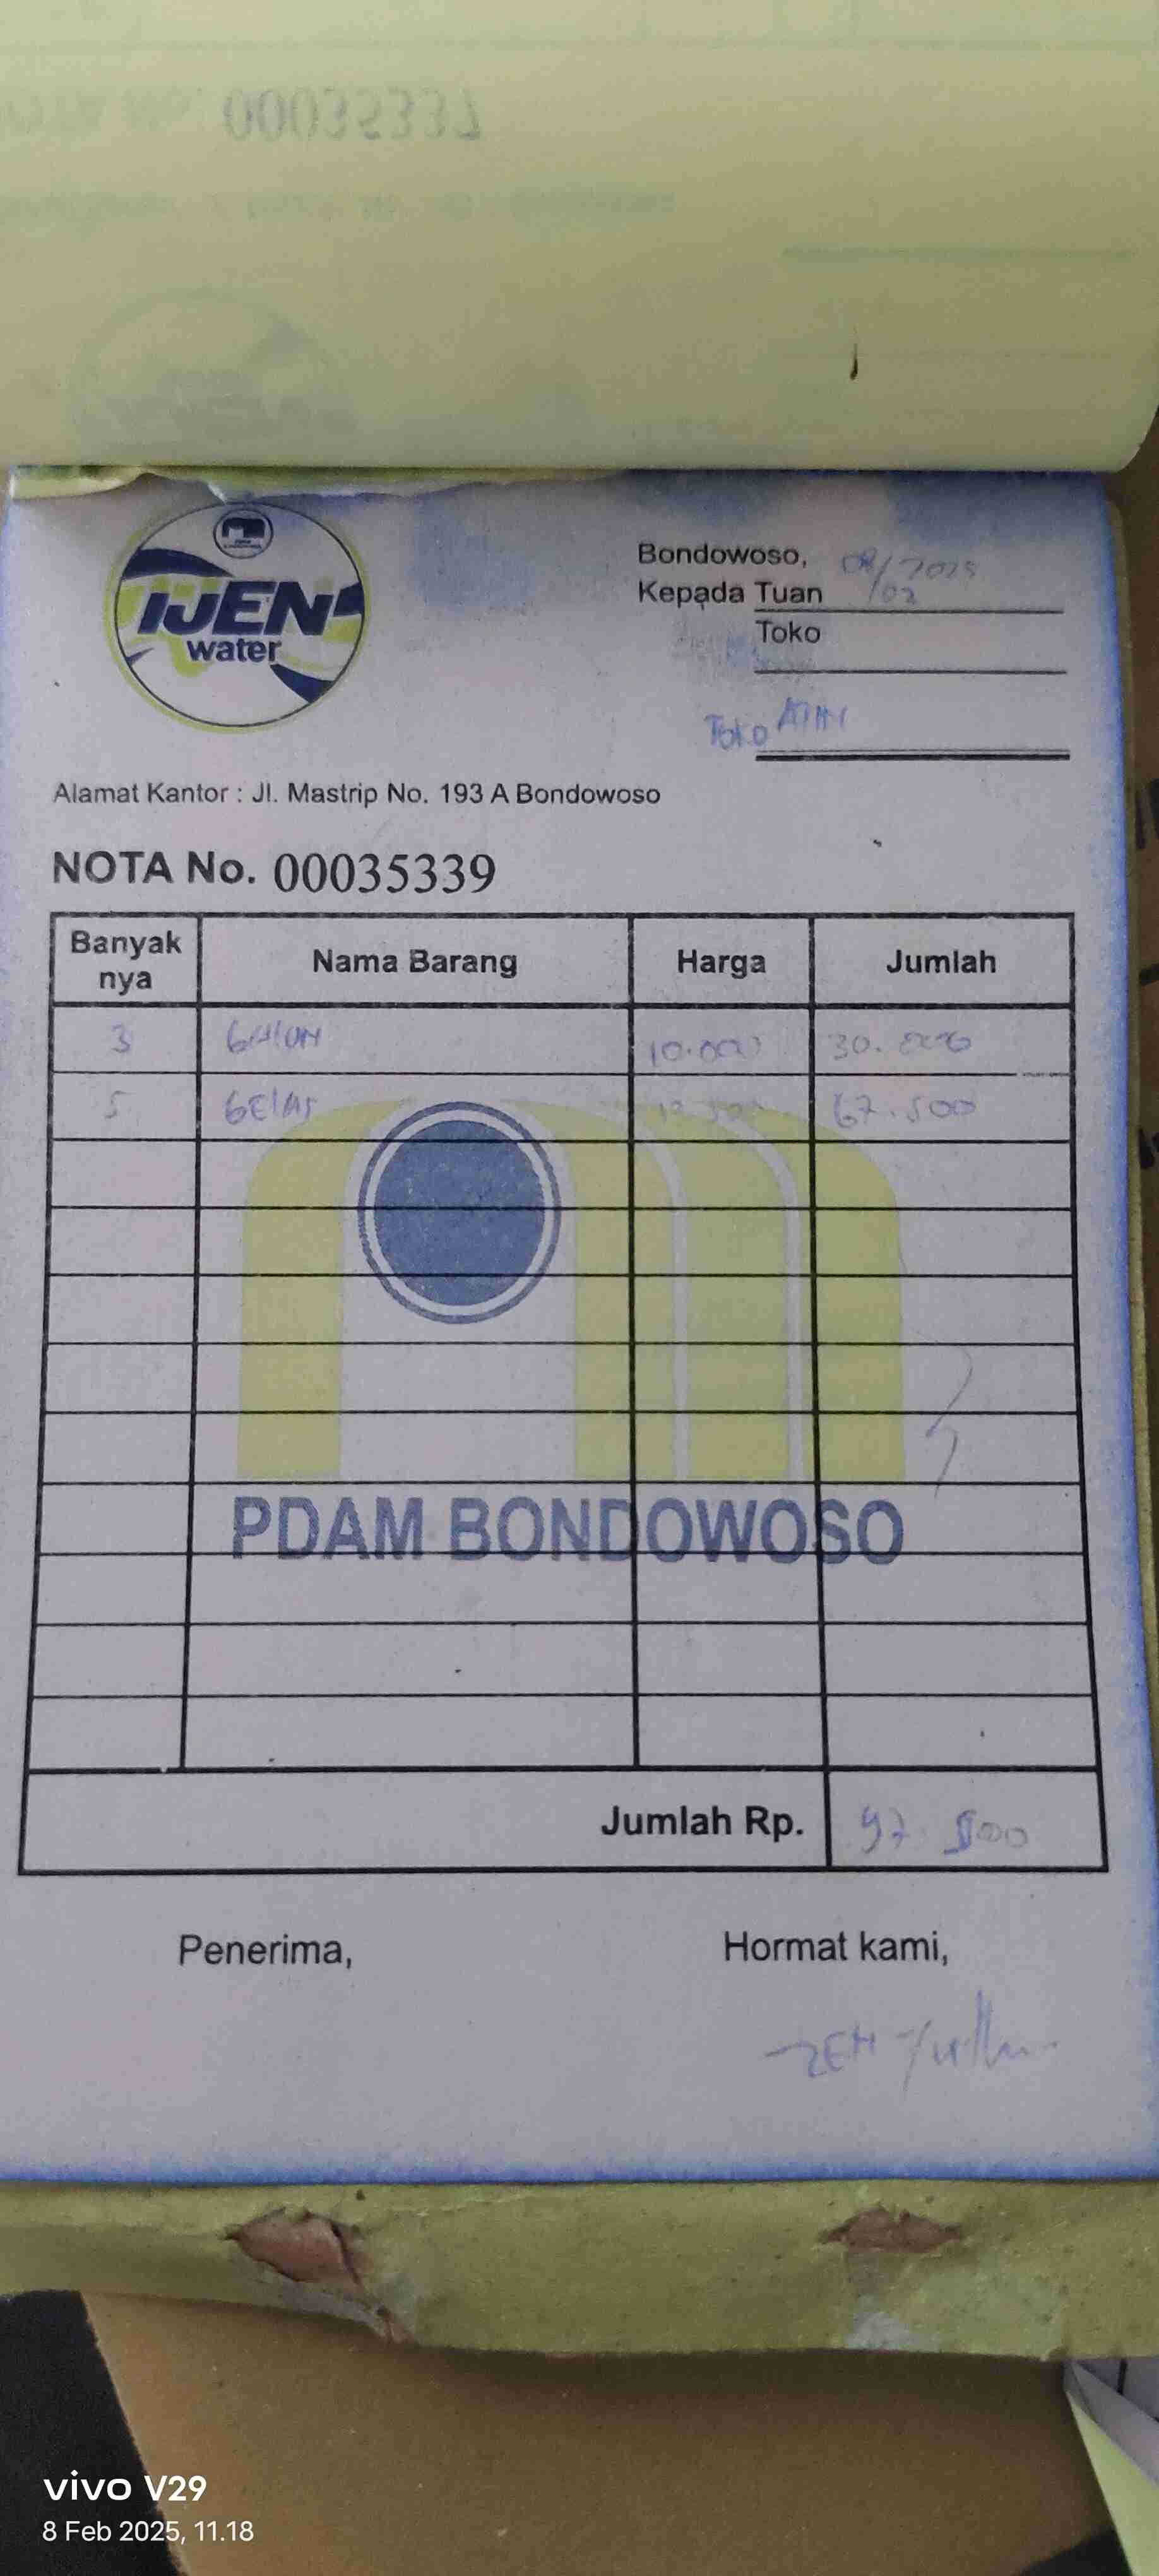 00035337
IJEN
water
Bondowoso, 08/02 2025
Kepada Tuan
Toko
Toko ATIN
Alamat Kantor : Jl. Mastrip No. 193 A Bondowoso
NOTA No. 00035339
Banyak nya Nama Barang Harga Jumlah
3 GALON 10.000 30.000
5 GELAS 67.500
PDAM BONDOWOSO
Jumlah Rp. 97.500
Penerima, Hormat kami,
vivo V29
8 Feb 2025, 11.18